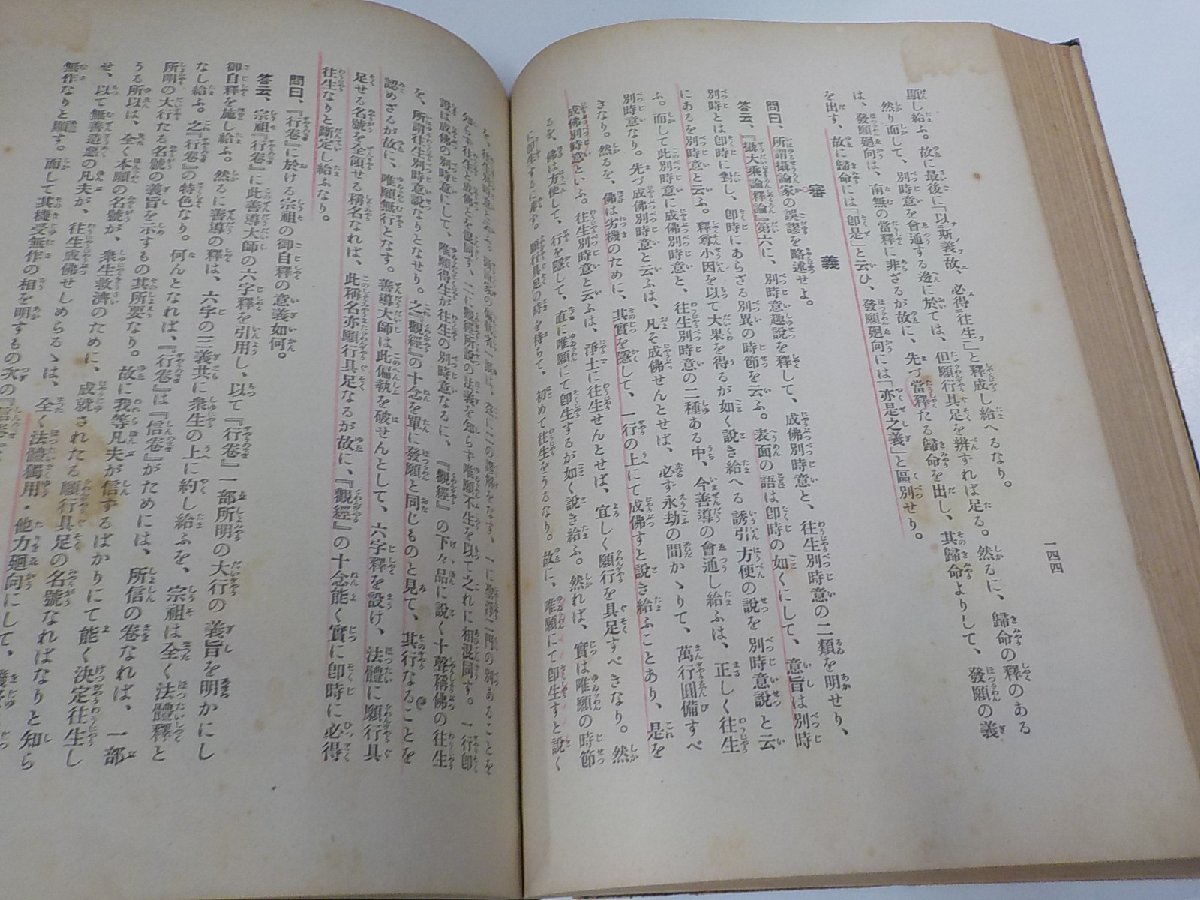 顯し給ふ。故に最後に「以斯義故、必得往生」と釋成し給へるなり。
然り而して、別時意を會通する邊に於ては、但願行具足を辨ずれば足る。然るに、歸命の釋のある
は、發願廻向は、南無の當釋に非ざるが故に、先づ當釋たる歸命を出し、其歸命よりして、發願の義
を出す、故に歸命には「卽是」と云ひ、發願廻向には「亦是之義」と區別せり。
一四四
審義
問曰、所謂攝論家の誤謬を略述せよ。
答云、『攝大乘論釋論』第六に、別時意趣說を釋して、成佛別時意と、往生別時意の二類を明せり、
別時とは卽時に對し、卽時にあらざる別異の時節を云ふ。表面の語は卽時の如くにして、意旨は別時
にあるを別時意と云ふ。釋尊小因を以て大果を得るが如く說き給へる誘引方便の說を別時意說と云
ふ。而して此別時意に成佛別時意と、往生別時意の二種ある中、今善導の會通し給ふは、正しく往生
別時意なり。先づ成佛別時意と云ふは、凡そ成佛せんとせば、必ず永劫の間かゝりて、萬行圓備すべ
きなり。然るを、佛は劣機のために、其實を隱して、一行の上にて成佛すと說き給ふことあり、是を
成佛別時意といふ。往生別時意と云ふは、淨土に往生せんとせば、宜しく願行を具足すべきなり。然
を、佛は方便して、行を隱して、直に唯願にて卽生するが如く說き給ふ。然れば、實は唯願の時節
に卽生するに非ず。願行具足の時を待ちて、初めて往生をうるなり。故に、唯願にて卽生すと說く
知らず往生と成佛とを混同す、二に觀經所說の法義を知らず唯願不生を以て之れに相混同す。一行卽
說は成佛の別時意にして、唯願得生が往生の別時意なるに、『觀經』の下々品に說く十聲稱佛の往生
を、所謂往生別時意說なりとなせり。之『觀經』の十念を單に發願と同じものと見て、其行なることを
認めざるが故に、唯願無行となす。善導大師は此偏執を破せんとして、六字釋を設け、法體に願行具
足せる名號を全領せる稱名なれば、此稱名亦願行具足なるが故に、『觀經』の十念能く實に卽時に必得
往生なりと斷定し給ふなり。
問曰、『行卷』に於ける宗祖の御自釋の意義如何。
答云、宗祖『行卷』に此善導大師の六字釋を引用し、以て『行卷』一部所明の大行の義旨を明かにし
御自釋を施し給ふ。然るに善導の釋は、六字の三義共に衆生の上に約し給ふを、宗祖は全く法體釋と
なし給ふ。之『行卷』の特色なり。何んとなれば、『行卷』は『信卷』がためには、所信の卷なれば、一部
所明の大行たる名號の義旨を示すもの其所要なり。故に我等凡夫が信ずるばかりにて能く決定往生し
うる所以は、全く本願の名號が、衆生救濟のために、成就されたる願行具足の名號なればなりと知ら
せ、以て無善造惡の凡夫が、往生成佛せしめらるゝは、全く法體獨用・他力廻向にして、
無作なりと顯す。而して其機受無作の相を明すもの次の